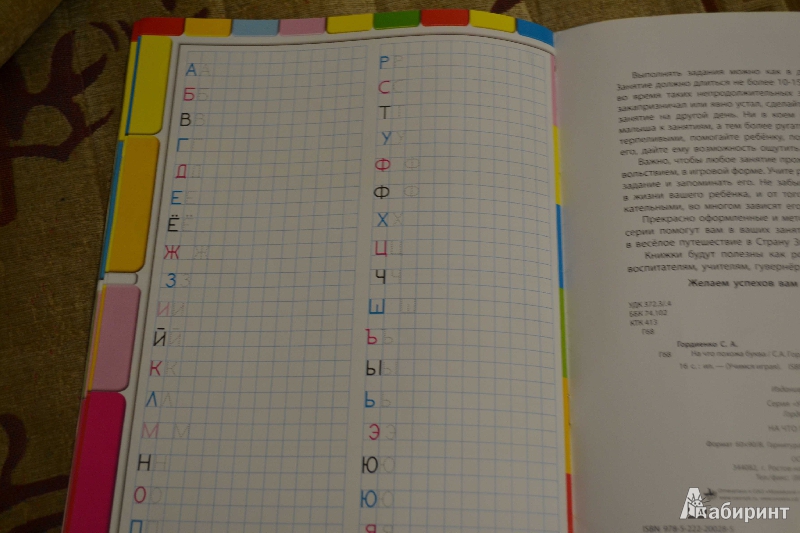 А А
Б Б
В В
Г
Д Д
Е Е
Ё Ё
Ж Ж
З З
И И
Й Й
К К
Л Л
М М
Н Н
О О
П
Р Р
С С
Т Т
У У
Ф Ф
Ф Ф
Х Х
Ц Ц
Ч Ч
Ш Ш
Ъ Ъ
Ы Ы
Ь Ь
Э Э
Ю Ю
Ю Ю
Я
Выполнять задания можно как в д
Занятие должно длиться не более 10-15
во время таких непродолжительных з
закапризничал или явно устал, сделай
занятие на другой день. Ни в коем
малыша к занятиям, а тем более ругат
терпеливыми, помогайте ребёнку, по
его, дайте ему возможность ощутить
Важно, чтобы любое занятие про
вольствием, в игровой форме. Учите р
задание и запоминать его. Не забы
в жизни вашего ребёнка, и от тог
кательными, во многом зависят его
Прекрасно оформленные и мет
серии помогут вам в ваших заня
в весёлое путешествие в Страну З
Книжки будут полезны как ро
воспитателям, учителям, гувернёр
Желаем успехов вам
УДК 372.3/.4
ББК 74.102
КТК 413
Г68
Гордиенко С. А.
Г68 На что похожа буква / С.А. Гор
16 с.: ил. — (Учимся играя).
НА ЧТО
ISBN 978-5-222-20028-5
Лабиринт